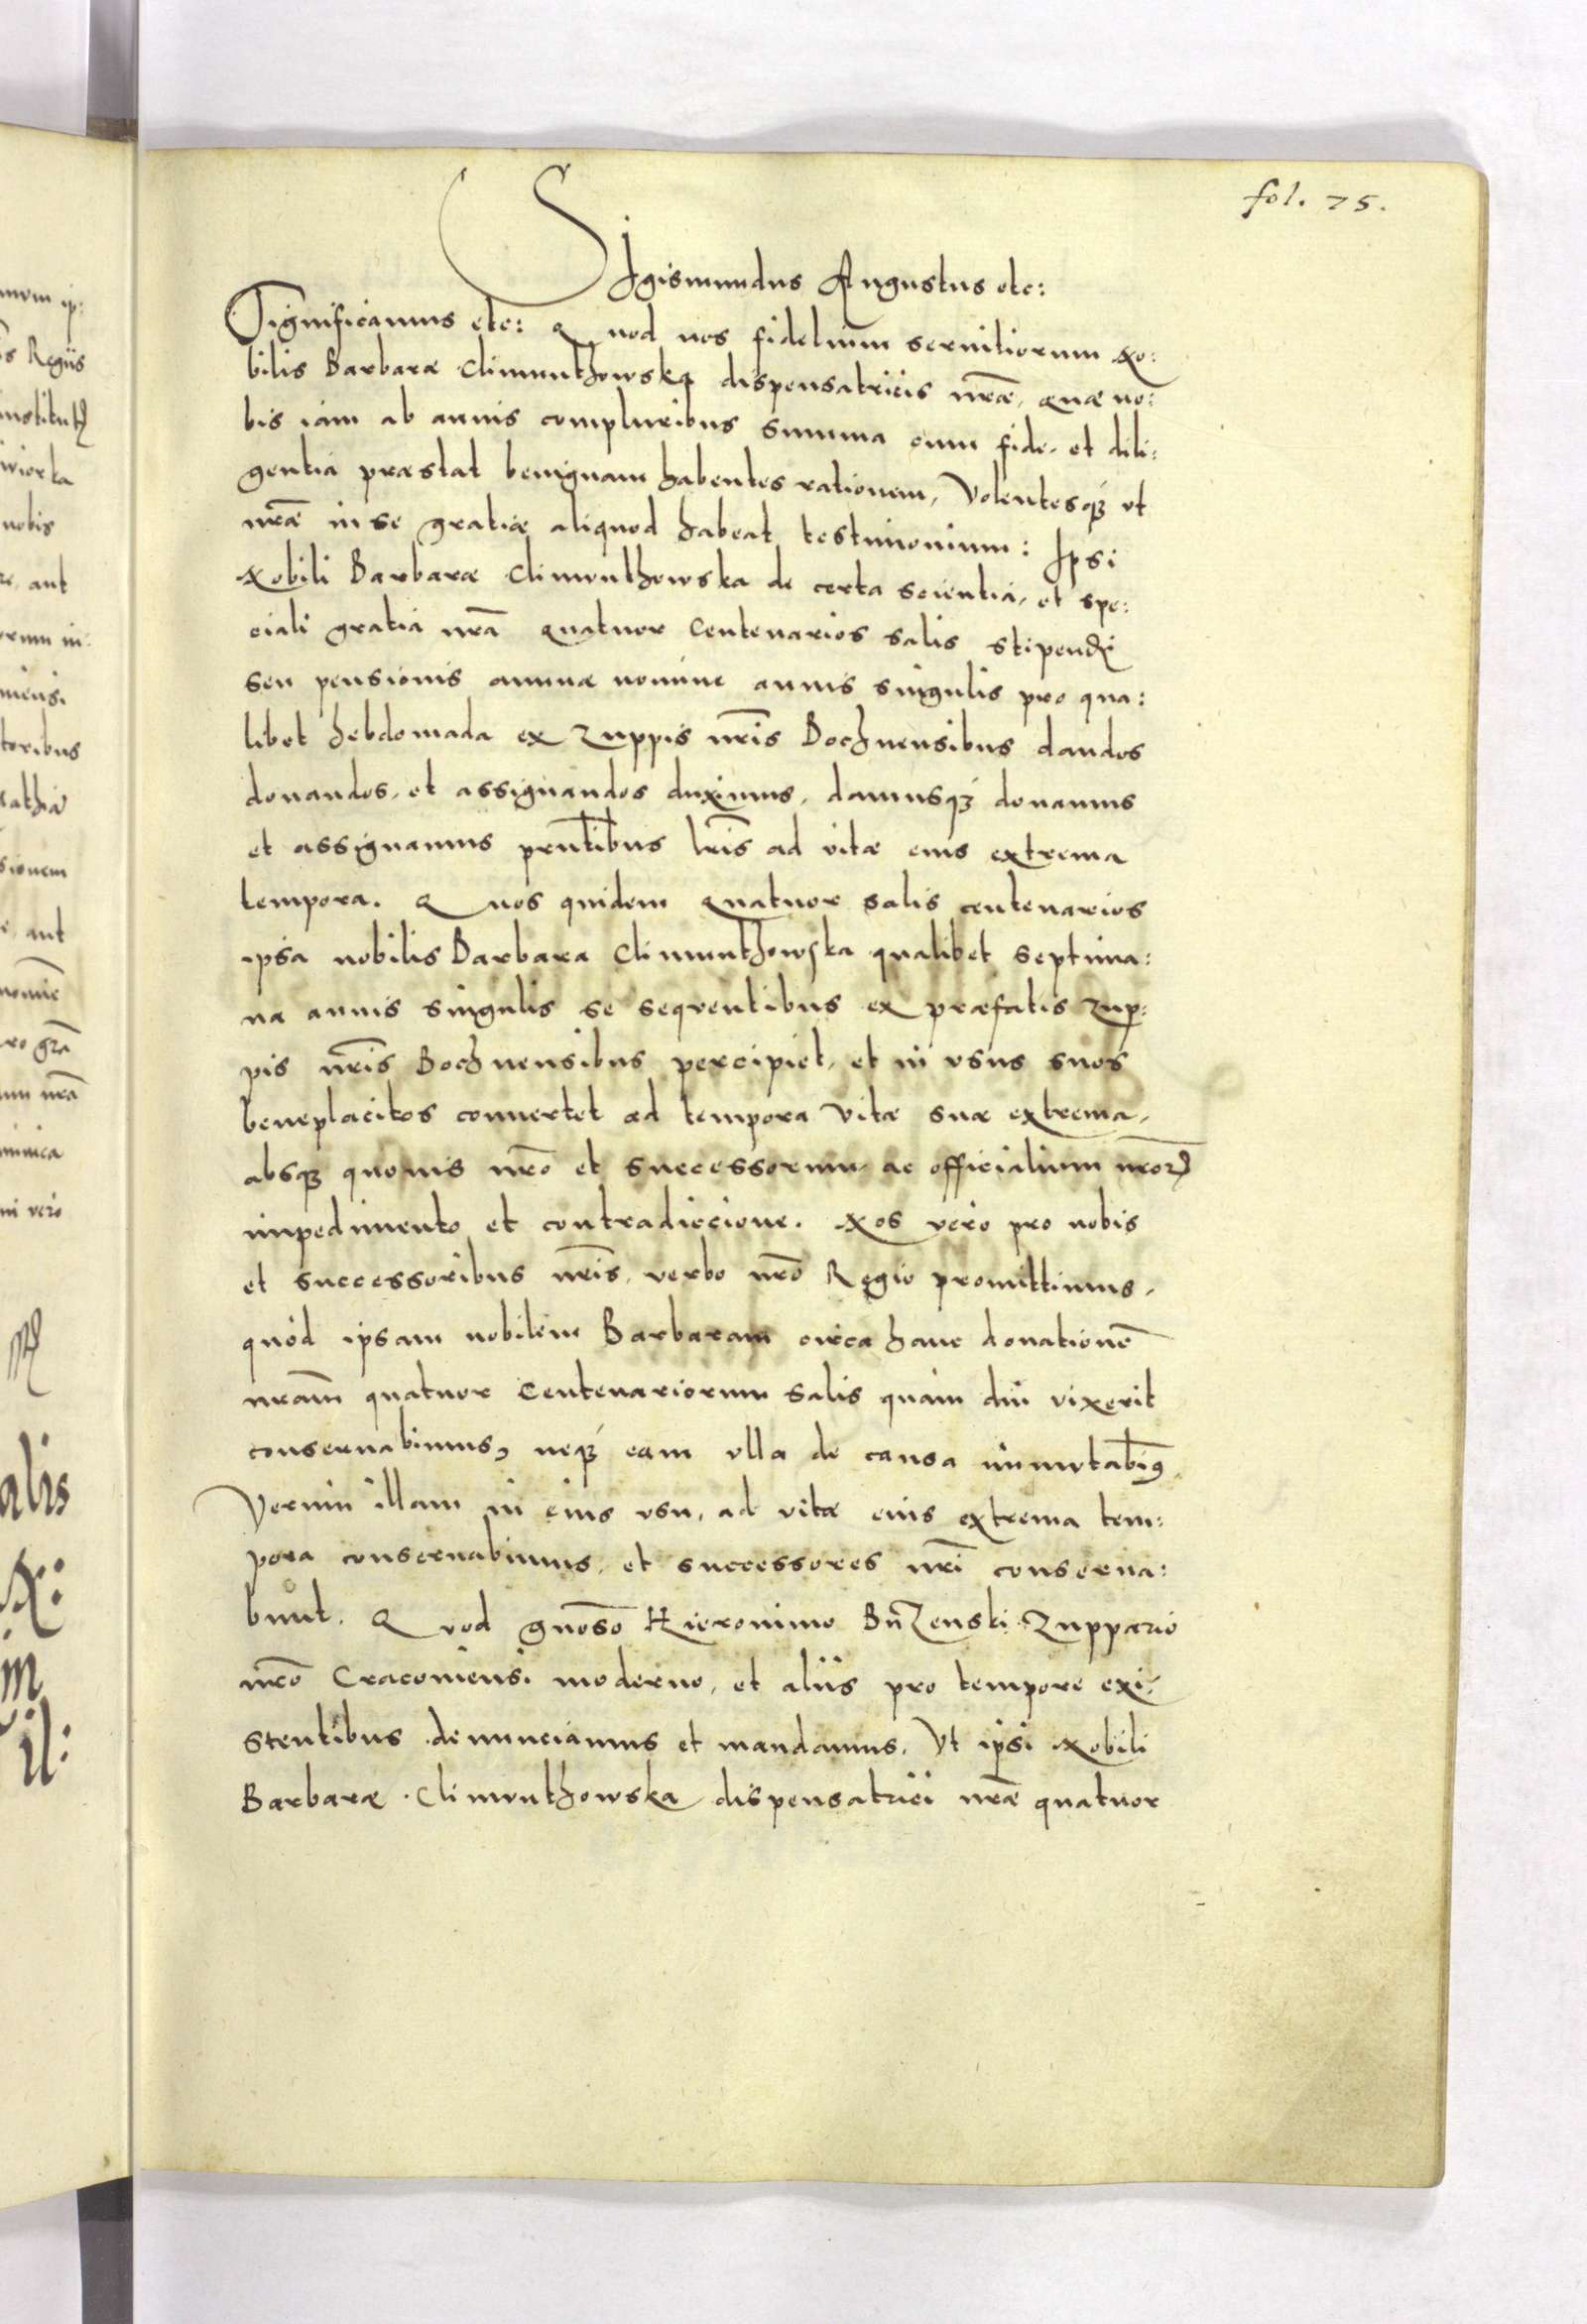 fol. 75.
Sigismundus Augustus etc:
Significamus etc: Quod nos fidelium seruitiorum No:
bilis Barbaræ Climunthowskæ dispensatricis nræ, quæ no:
bis iam ab annis compluribus summa cum fide, et dili:
gentia præstat benignam habentes rationem, Volentesq́3 vt
nr̃æ in se gratiæ aliquod habeat testimonium: Ipsi
Nobili Barbaræ Climunthowska de certa scientia, et spe:
ciali gratia nr̃a quatuor Centenarios salis stipendÿ
seu pensionis annuæ nomine annis singulis pro qua:
libet hebdomada ex Zuppis nr̃is Bochnensibus dandos
donandos, et assignandos duximus, damusq́3 donamus
et assignamus pñtibus lr̃is ad vitæ eius extrema
tempora. Quos quidem quatuor salis centenarios
ipsa nobilis Barbara Climunthowska qualibet septima:
na annis singulis se seqventibus ex præfatis Zup:
pis nr̃is Bochnensibus percipiet, et in vsus suos
beneplacitos conuertet ad tempora Vitæ suæ extrema,
absq3 quouis nr̃o et successorum, ac officialium nr̃orꝝ
impedimento et contradiccione. Nos vero pro nobis
et successoribus nr̃is, verbo nr̃o Regio promittimus,
quòd ipsam nobilem Barbaram circa hanc donationẽ
nr̃am quatuor Centenariorum salis quàm diu vixerit
conseruabimus, neq́3 eam vlla de causa immutabimꝰ,
Verum illam in eius vsu, ad vitæ eius extrema tem:
pora conseruabimus, et successores nr̃i conserua:
bunt. Quod gñoso Hieronimo Buzenski Zuppario
nr̃o Cracouiensi moderno, et aliis pro tempore exi:
stentibus denunciamus et mandamus, Vt ipsi Nobili
Barbaræ Climunthowska dispensatrici nr̃æ quatuor